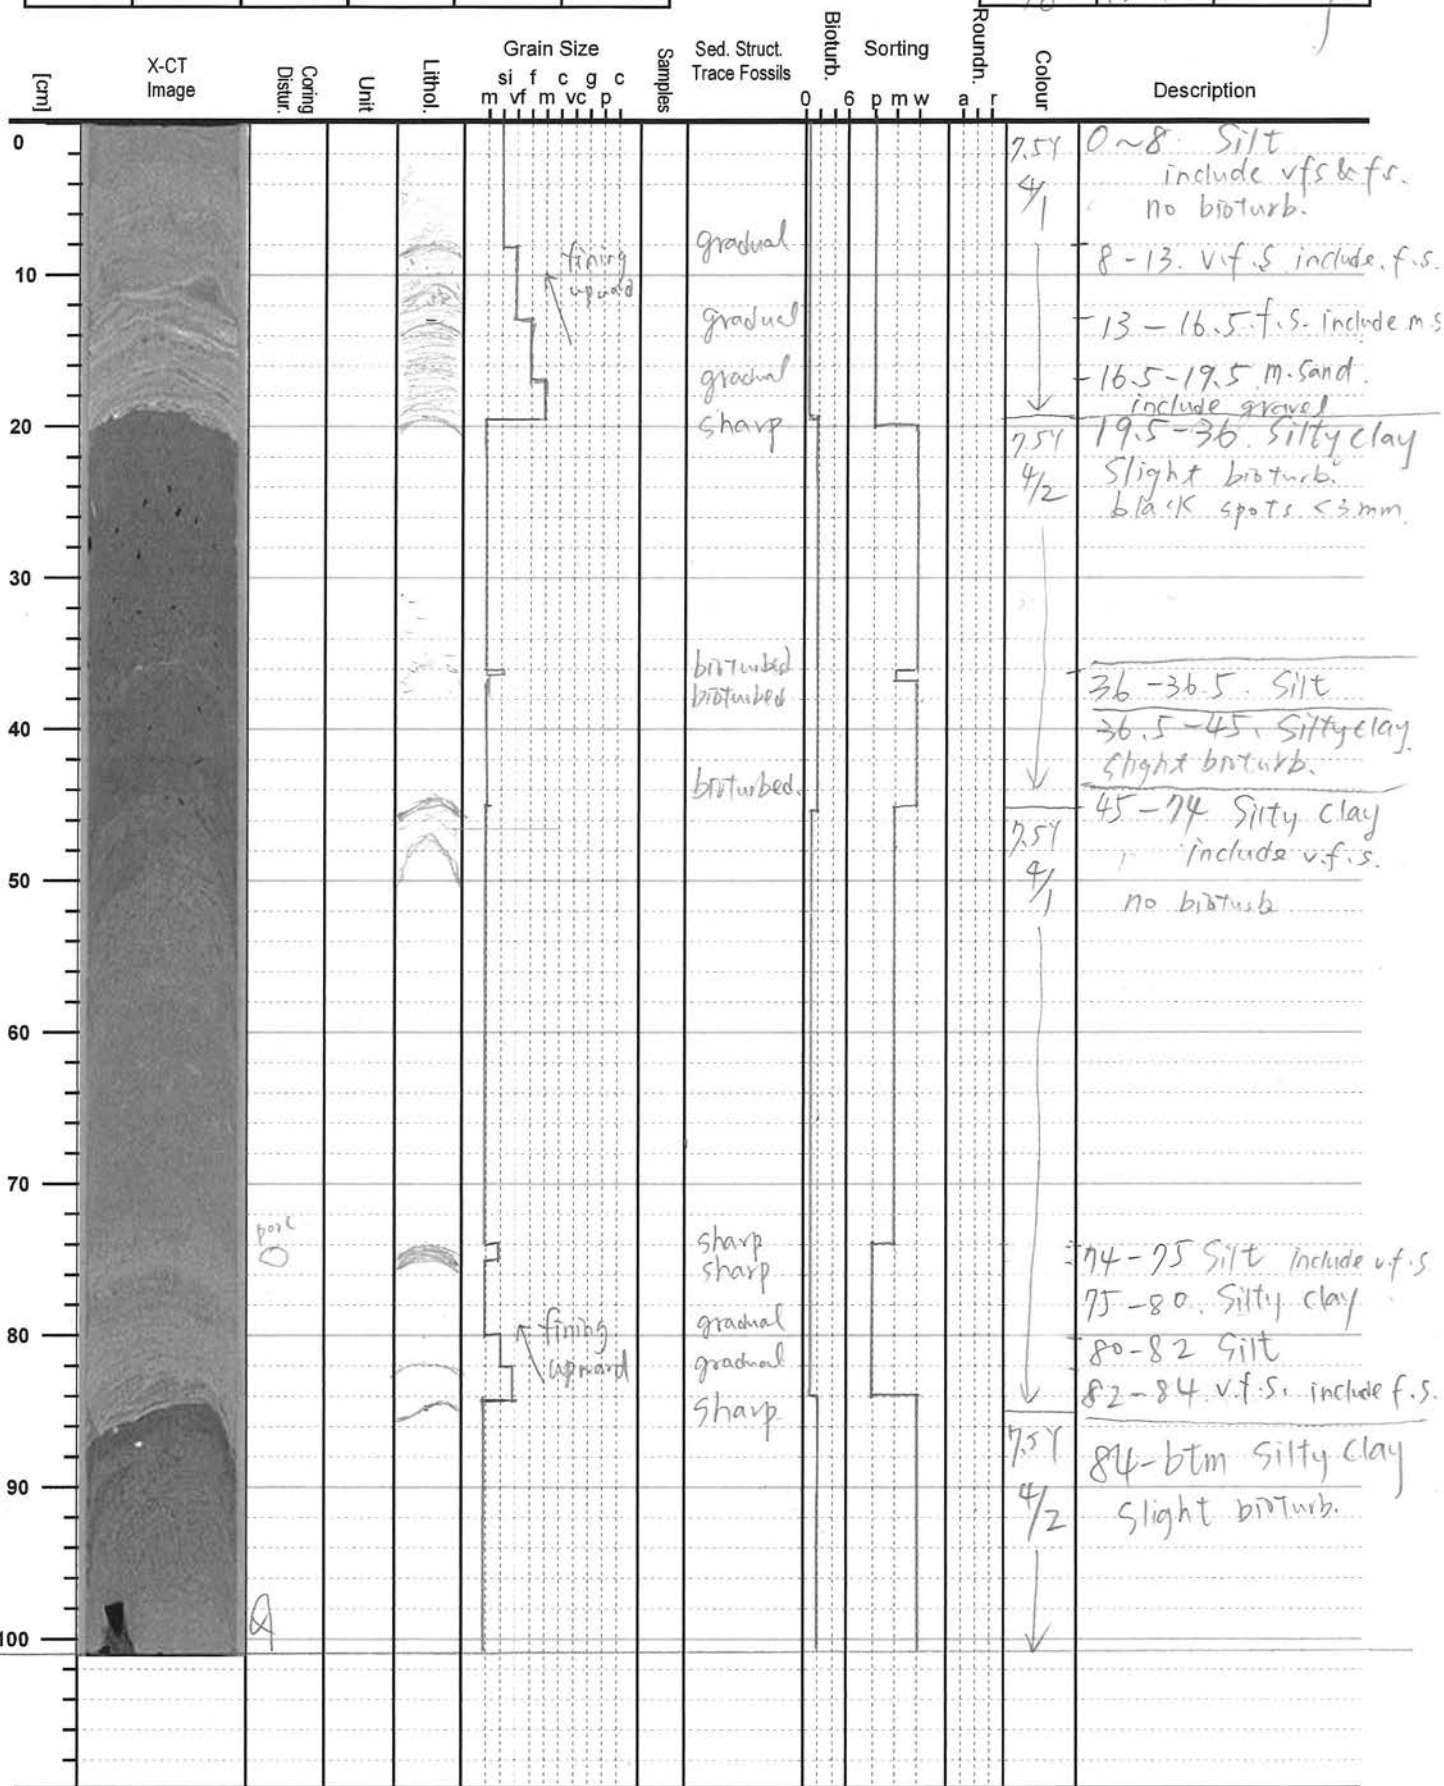 [cm]
X-CT
Image
Coring
Distur.
Unit
Lithol.
Grain Size
si f c g c
m vf m vc p
Samples
Sed. Struct.
Trace Fossils
Bioturb.
0 6
Sorting
p m w
Roundn.
a r
Colour
Description
0
10
20
30
40
50
60
70
80
90
100
fining
upward
pore
fining
upward
gradual
gradual
gradual
sharp
bioturbed
bioturbed
bioturbed.
sharp
sharp
gradual
gradual
sharp
7.5Y
4/1
7.5Y
4/2
7.5Y
4/1
7.5Y
4/2
0~8. Silt
include vfs & fs.
no bioturb.
8-13. v.f.s include. f.s.
13-16.5. f.s. include m.s
16.5-19.5. m.sand.
include gravel
19.5-36. Silty clay
Slight bioturb.
black spots <3mm.
36-36.5. Silt
36.5-45. Silty clay.
slight bioturb.
45-74 Silty clay
include v.f.s.
no bioturb
74-75 Silt include v.f.s
75-80. Silty clay
80-82 Silt
82-84 v.f.s. include f.s.
84-btm Silty clay
Slight bioturb.